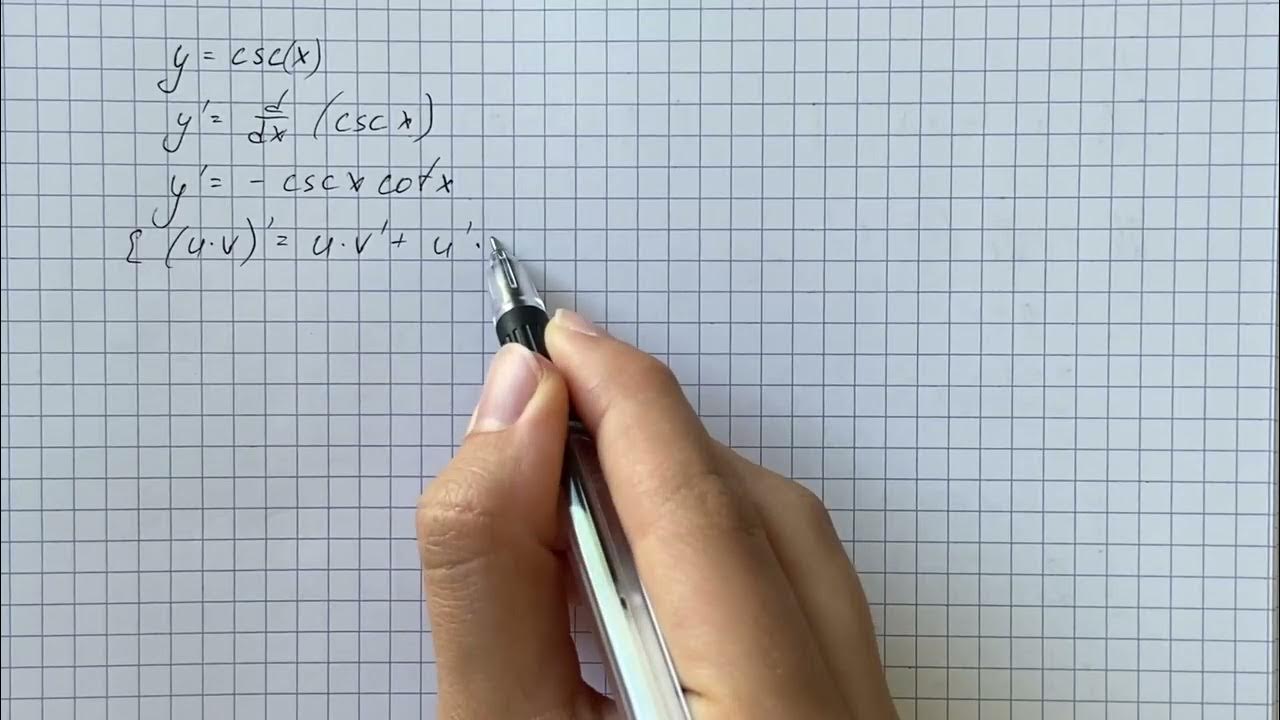 y = csc(x)
y' = d/dx (csc x)
y' = - csc x cot x
[ (u·v)' = u·v' + u'·